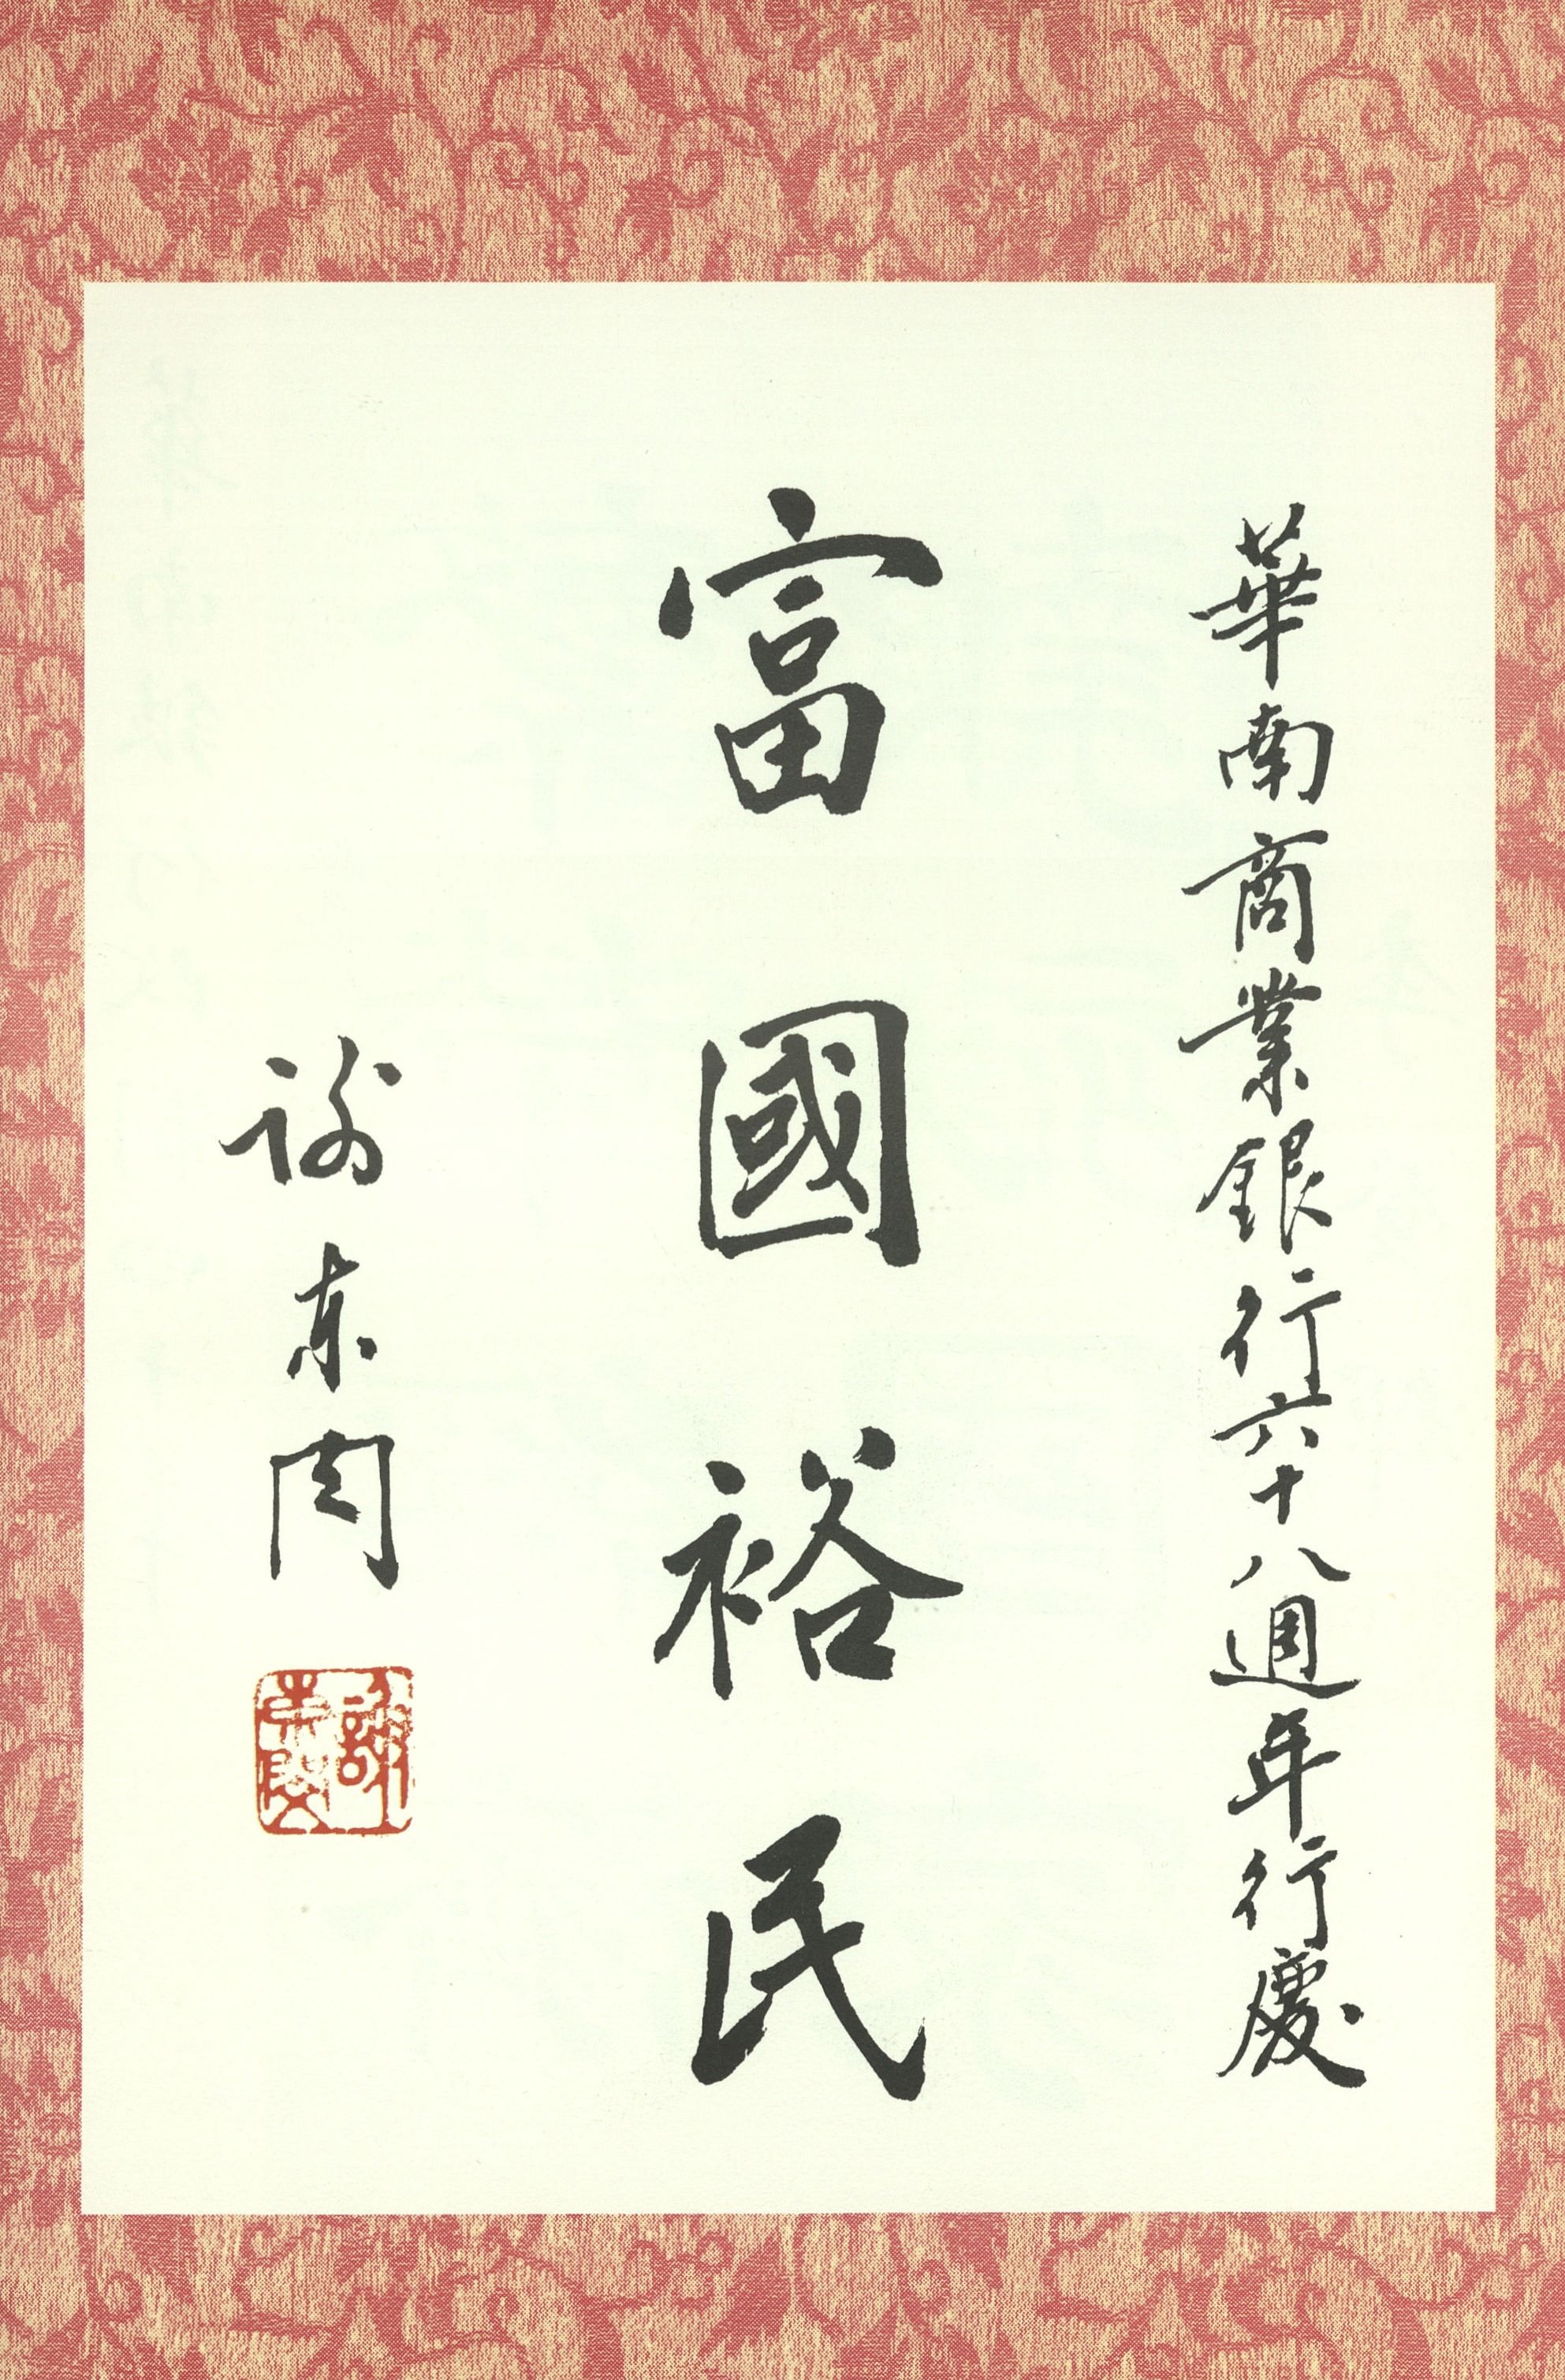 華南商業銀行六十八週年行慶
富國裕民
謝东闵
謝東閔